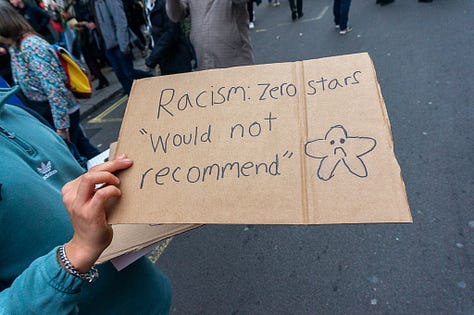 Racism: zero stars
"Would not
recommend"
adidas